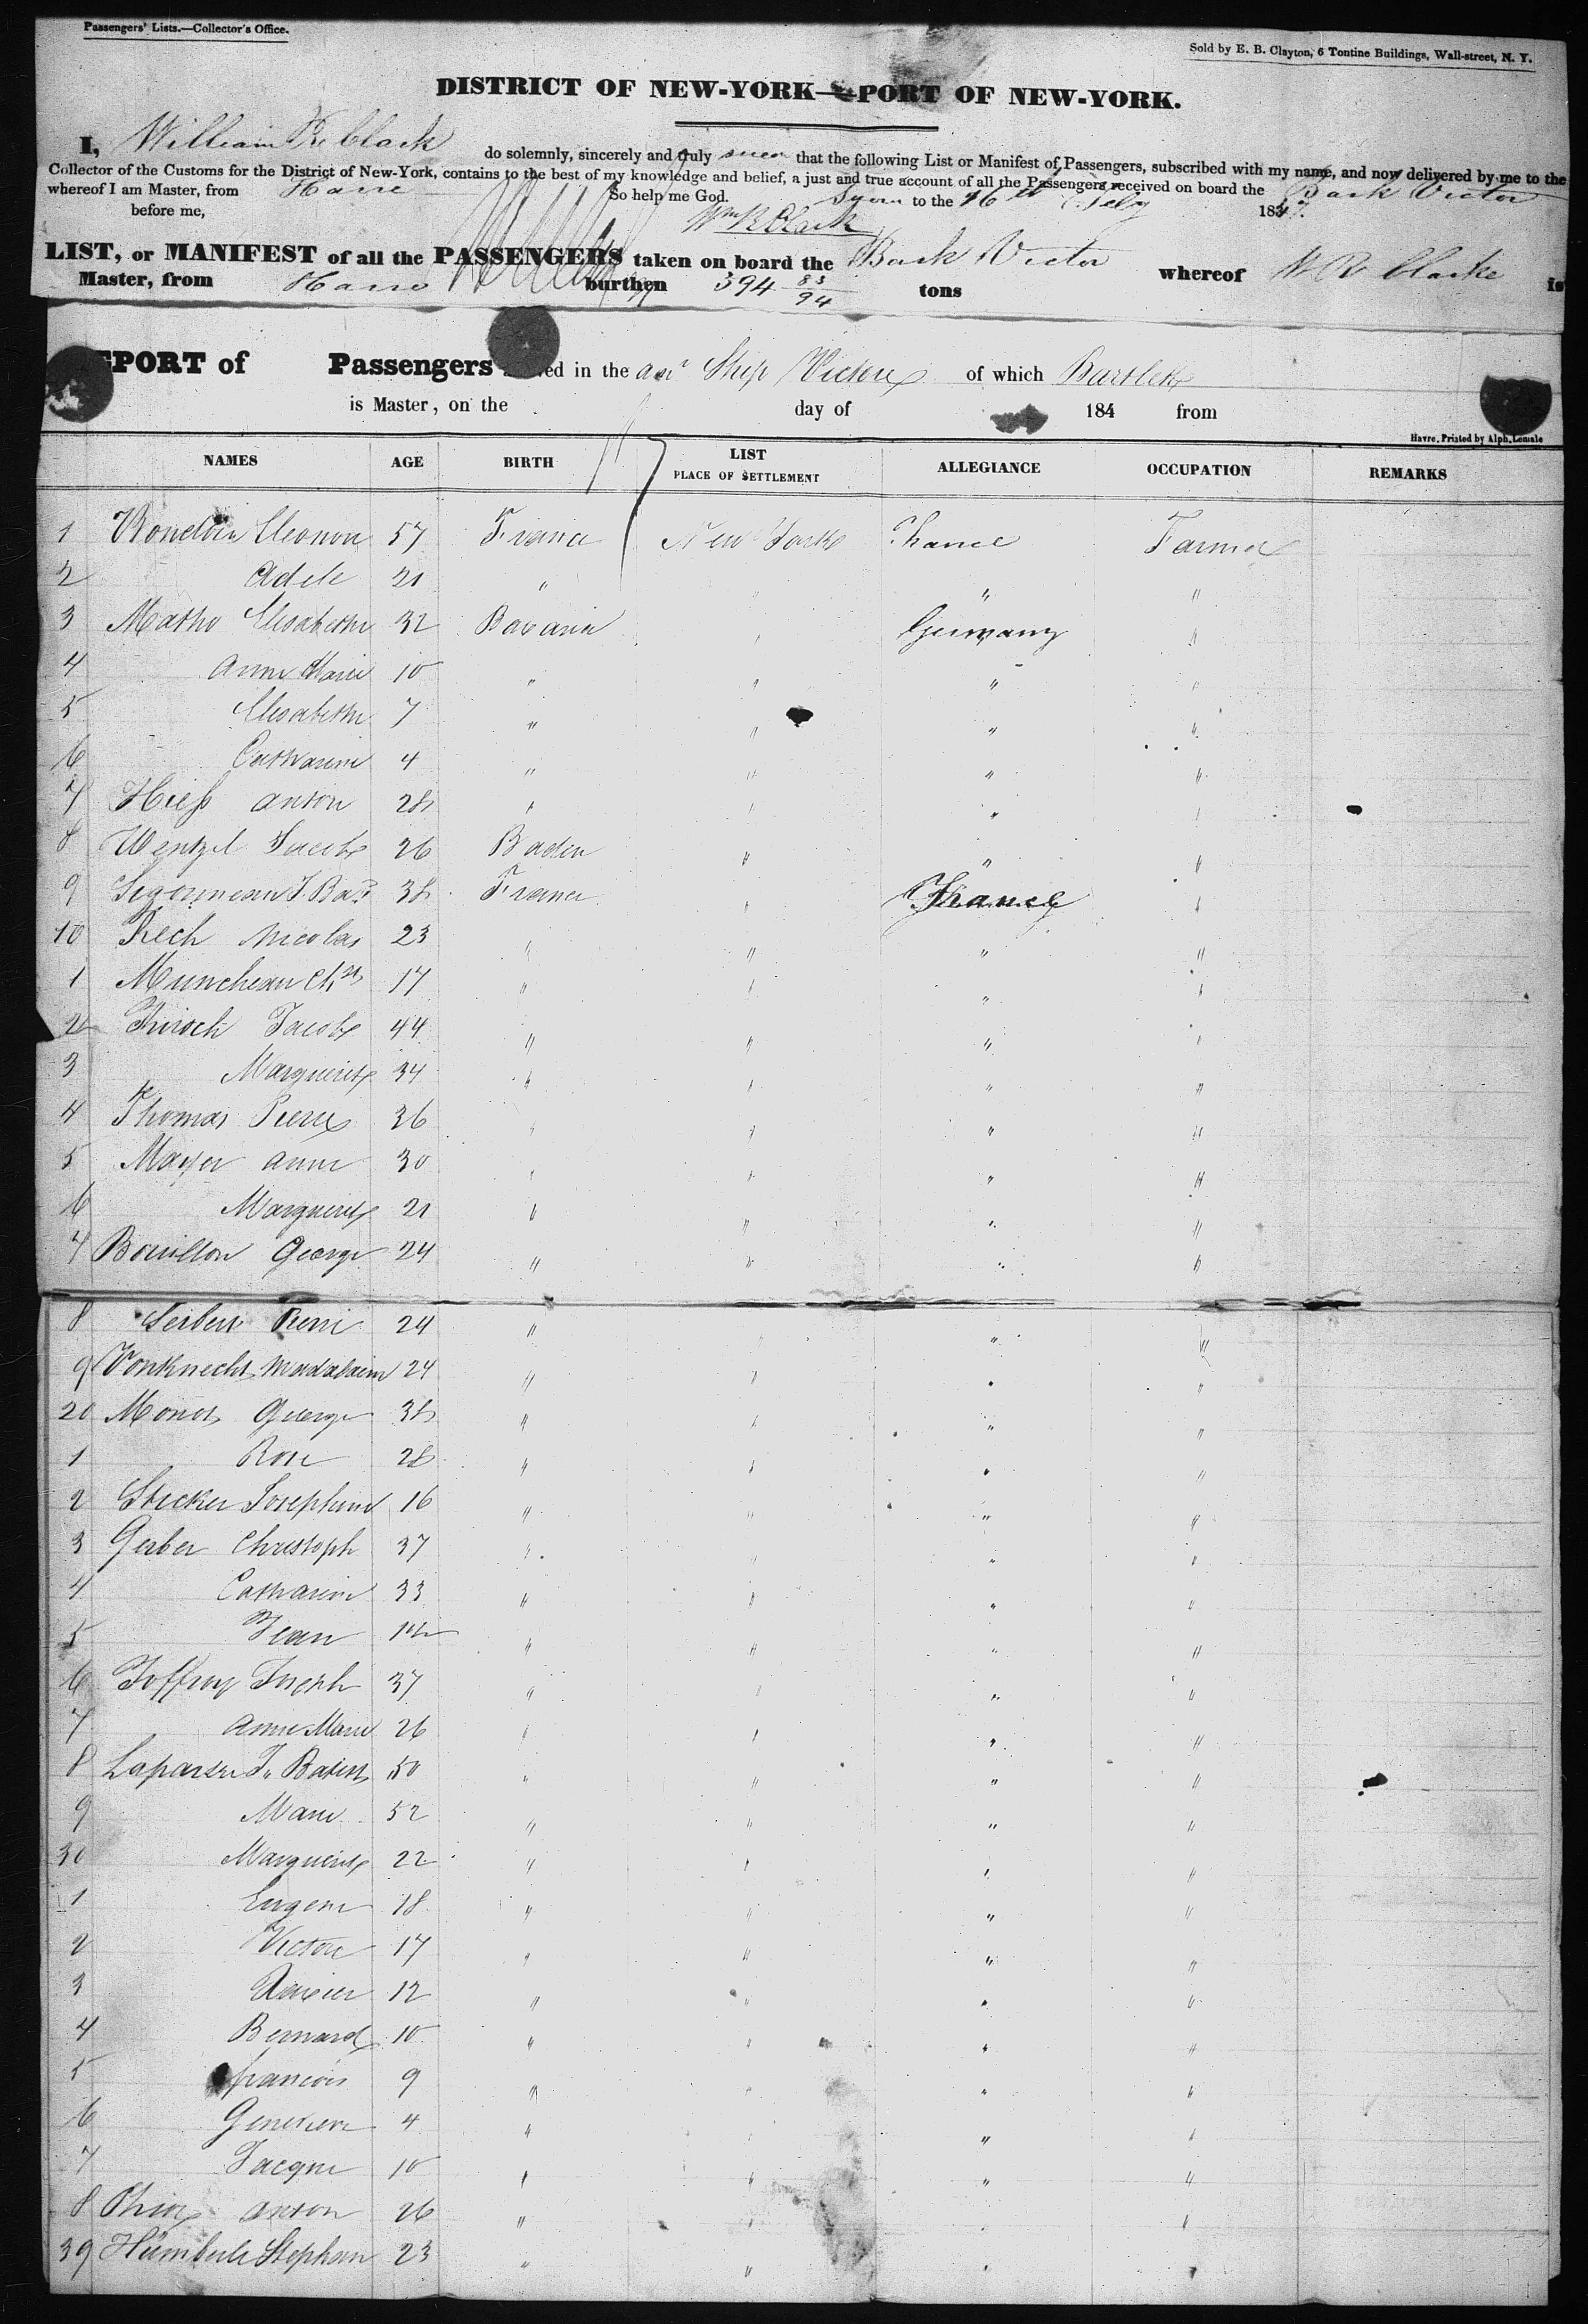 Passengers' Lists.—Collector's Office.
Sold by E. B. Clayton, 6 Tontine Buildings, Wall-street, N. Y.
DISTRICT OF NEW-YORK—PORT OF NEW-YORK.
I, William R Clark do solemnly, sincerely and truly swear that the following List or Manifest of Passengers, subscribed with my name, and now delivered by me to the
Collector of the Customs for the District of New-York, contains to the best of my knowledge and belief, a just and true account of all the Passengers received on board the Bark Victor
whereof I am Master, from Havre So help me God.
before me, Sworn to the 16th 1847.
Wm R Clark
LIST, or MANIFEST of all the PASSENGERS taken on board the Bark Victor whereof W R Clarke is
Master, from Havre burthen 394 83/94 tons
PORT of Passengers ed in the Ship of which Bartlett
is Master, on the day of 184 from
Havre, Printed by Alph. Lemale
NAMES AGE BIRTH LIST PLACE OF SETTLEMENT ALLEGIANCE OCCUPATION REMARKS
1 57 France New York France Farmer
2 Adele 21 " " " "
3 Matho Elisabethe 32 Bavaria " Germany "
4 Anne Marie 10 " " " "
5 Elisabethe 7 " " " "
6 Catharine 4 " " " "
7 Hiess Anton 28 " " " "
8 Wentzel Jacob 26 Baden " " "
9 38 France " France "
10 Nicolas 23 " " " "
1 17 " " " "
2 Jacob 44 " " " "
3 Marguerite 34 " " " "
4 Thomas Pierre 36 " " " "
5 Mayer Anne 30 " " " "
6 Marguerite 21 " " " "
7 Bouillon George 24 " " " "
8 Seibert Pierre 24 " " " "
9 Vonknecht 24 " " " "
20 George 38 " " " "
1 Rose 28 " " " "
2 Stecker Josephine 16 " " " "
3 Gerber Christoph 37 " " " "
4 Catharine 33 " " " "
5 Jean " " " "
6 Joffroy Joseph 37 " " " "
7 Anne Marie 26 " " " "
8 50 " " " "
9 Marie 52 " " " "
30 Marguerite 22 " " " "
1 Eugene 18 " " " "
2 17 " " " "
3 12 " " " "
4 Bernard 10 " " " "
5 francois 9 " " " "
6 Genevieve 4 " " " "
7 Jacque 10 " " " "
8 Anton 26 " " " "
39 Stephan 23 " " " "